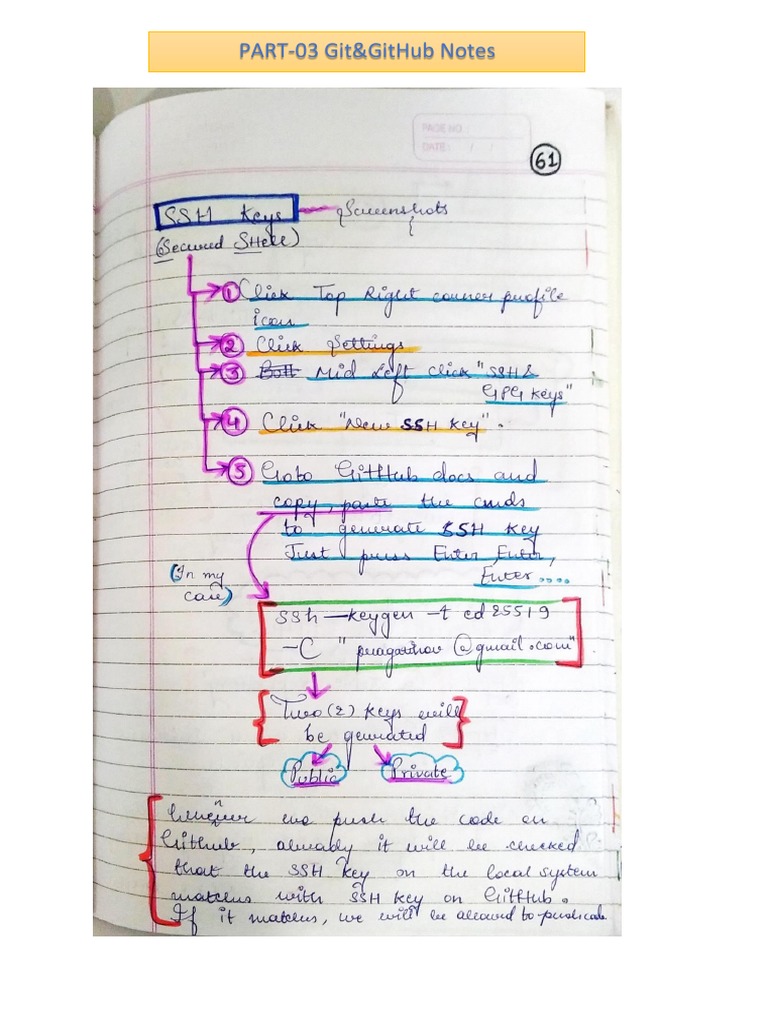 PART-03 Git&GitHub Notes
PAGE NO.:
DATE: / /
61
SSH Keys Screenshots
(Secured SHell)
1 Click Top Right corner profile
icon
2 Click Settings
3 Mid Left click "SSH &
GPG Keys"
4 Click "New SSH Key".
5 Goto GitHub docs and
copy, paste the cmds
to generate SSH Key
Just press Enter, Enter,
Enter....
(In my
case)
ssh-keygen -t ed25519
-C " @gmail.com"
Two (2) Keys will
be generated
Public Private
Whenever we push the code on
GitHub, already it will be checked
that the SSH Key on the local system
matches with SSH Key on GitHub.
If it matches, we will be allowed to push code